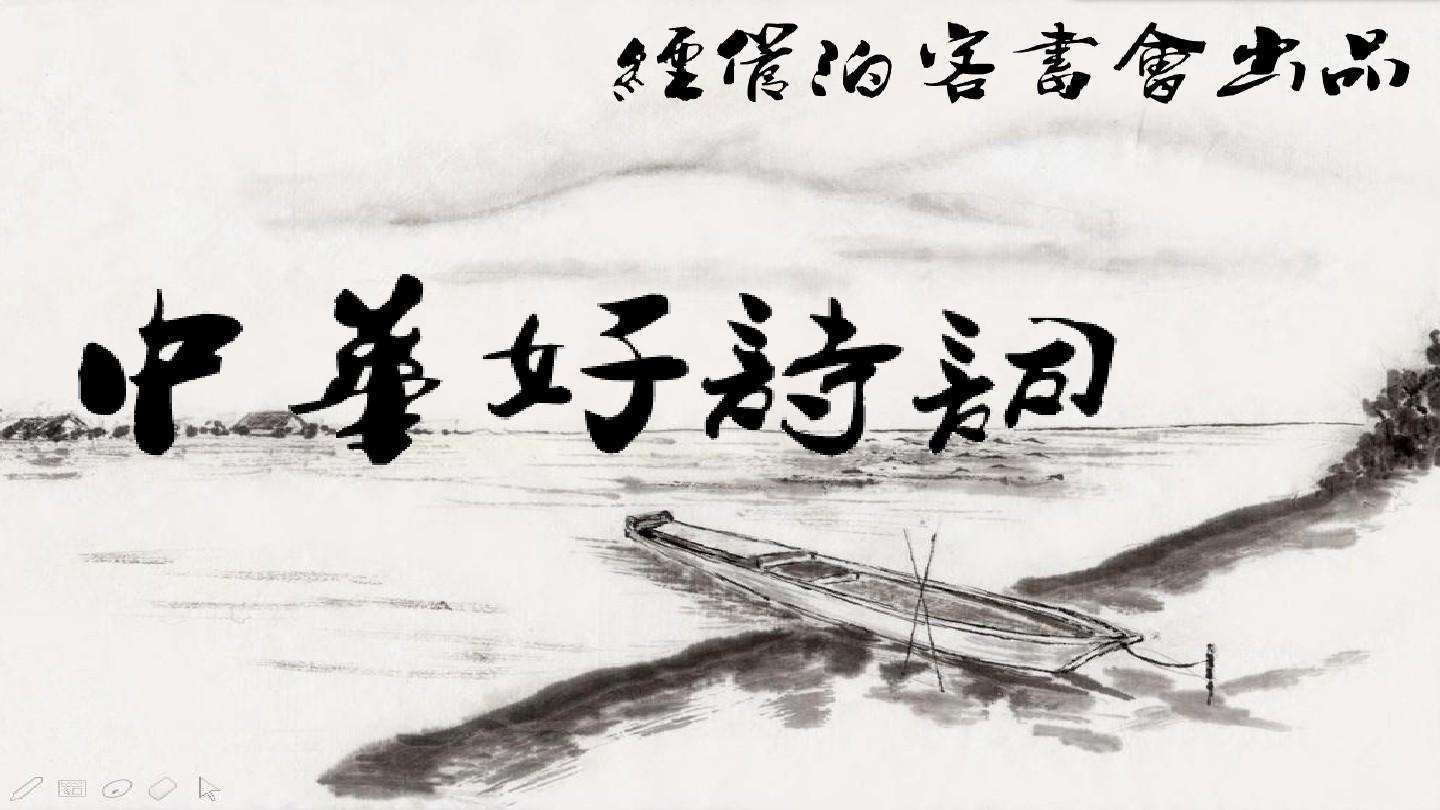 經泊客書會出品
中華好詩詞